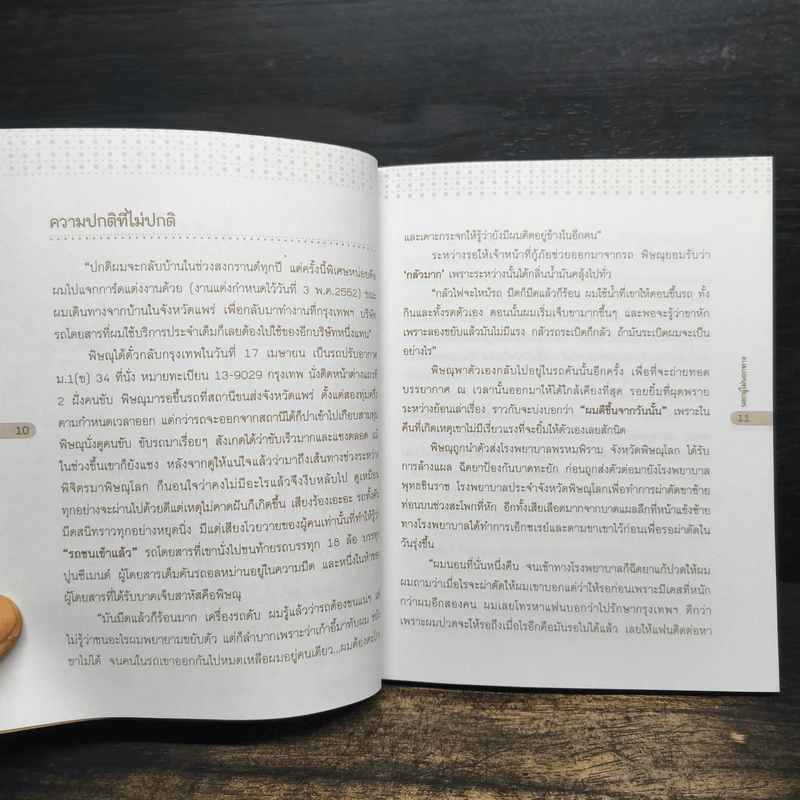 ความปกติที่ไม่ปกติ
“ปกติผมจะกลับบ้านในช่วงสงกรานต์ทุกปี แต่ครั้งนี้พิเศษหน่อยคือ
ผมไปแจกการ์ดแต่งงานด้วย (งานแต่งกำหนดไว้วันที่ 3 พ.ค.2552) ขณะ
ผมเดินทางจากบ้านในจังหวัดแพร่ เพื่อกลับมาทำงานที่กรุงเทพฯ บริษัท
รถโดยสารที่ผมใช้บริการประจำเต็มก็เลยต้องไปใช้ของอีกบริษัทหนึ่งแทน”
พิษณุได้ตั๋วกลับกรุงเทพในวันที่ 17 เมษายน เป็นรถปรับอากาศ
ม.1(ข) 34 ที่นั่ง หมายทะเบียน 13-9029 กรุงเทพ นั่งติดหน้าต่างแถวที่
2 ฝั่งคนขับ พิษณุมารอขึ้นรถที่สถานีขนส่งจังหวัดแพร่ ตั้งแต่สองทุ่มครึ่ง
ตามกำหนดเวลาออก แต่กว่ารถจะออกจากสถานีได้ก็ปาเข้าไปเกือบสามทุ่ม
พิษณุนั่งดูคนขับ ขับรถมาเรื่อยๆ สังเกตได้ว่าขับเร็วมากและแซงตลอด แม้
ในช่วงขึ้นเขาก็ยังแซง หลังจากดูให้แน่ใจแล้วว่ามาถึงเส้นทางช่วงระหว่าง
พิจิตรมาพิษณุโลก ก็นอนใจว่าคงไม่มีอะไรแล้วจึงงีบหลับไป ดูเหมือน
ทุกอย่างจะผ่านไปด้วยดีแต่เหตุไม่คาดฝันก็เกิดขึ้น เสียงร้องเอะอะ รถทั้งคัน
มืดสนิทราวทุกอย่างหยุดนิ่ง มีแต่เสียงโวยวายของผู้คนเท่านั้นที่ทำให้รู้ว่า
“รถชนเข้าแล้ว” รถโดยสารที่เขานั่งไปชนท้ายรถบรรทุก 18 ล้อ บรรทุก
ปูนซีเมนต์ ผู้โดยสารเต็มคันรถอลหม่านอยู่ในความมืด และหนึ่งในห้าของ
ผู้โดยสารที่ได้รับบาดเจ็บสาหัสคือพิษณุ
“มันมืดแล้วก็ร้อนมาก เครื่องรถดับ ผมรู้แล้วว่ารถต้องชนแน่ๆ แต่
ไม่รู้ว่าชนอะไรผมพยายามขยับตัว แต่ก็ลำบากเพราะว่าเก้าอี้มาทับผม ขยับ
ขาไม่ได้ จนคนในรถเขาออกกันไปหมดเหลือผมอยู่คนเดียว...ผมต้องตะโกน
10
และเคาะกระจกให้รู้ว่ายังมีผมติดอยู่ข้างในอีกคน”
ระหว่างรอให้เจ้าหน้าที่กู้ภัยช่วยออกมาจากรถ พิษณุยอมรับว่า
‘กลัวมาก’ เพราะระหว่างนั้นได้กลิ่นน้ำมันคลุ้งไปทั่ว
“กลัวไฟจะไหม้รถ มืดก็มืดแล้วก็ร้อน ผมใช้น้ำที่เขาให้ตอนขึ้นรถ ทั้ง
กินและทั้งรดตัวเอง ตอนนั้นผมเริ่มเจ็บขามากขึ้นๆ และพอจะรู้ว่าขาหัก
เพราะลองขยับแล้วมันไม่มีแรง กลัวรถระเบิดก็กลัว ถ้ามันระเบิดผมจะเป็น
อย่างไร”
พิษณุพาตัวเองกลับไปอยู่ในรถคันนั้นอีกครั้ง เพื่อที่จะถ่ายทอด
บรรยากาศ ณ เวลานั้นออกมาให้ได้ใกล้เคียงที่สุด รอยยิ้มที่ผุดพราย
ระหว่างย้อนเล่าเรื่อง ราวกับจะบ่งบอกว่า “ผมดีขึ้นจากวันนั้น” เพราะใน
คืนที่เกิดเหตุเขาไม่มีเรี่ยวแรงที่จะยิ้มให้ตัวเองเลยสักนิด
พิษณุถูกนำตัวส่งโรงพยาบาลพรหมพิราม จังหวัดพิษณุโลก ได้รับ
การล้างแผล ฉีดยาป้องกันบาดทะยัก ก่อนถูกส่งตัวต่อมายังโรงพยาบาล
พุทธชินราช โรงพยาบาลประจำจังหวัดพิษณุโลกเพื่อทำการผ่าตัดขาซ้าย
ท่อนบนช่วงสะโพกที่หัก อีกทั้งเสียเลือดมากจากบาดแผลลึกที่หน้าแข้งซ้าย
ทางโรงพยาบาลได้ทำการเอ็กซเรย์และดามขาเขาไว้ก่อนเพื่อรอผ่าตัดใน
วันรุ่งขึ้น
“ผมนอนที่นั่นหนึ่งคืน จนเช้าทางโรงพยาบาลก็ฉีดยาแก้ปวดให้ผม
ผมถามว่าเมื่อไรจะผ่าตัดให้ผมเขาบอกแต่ว่าให้รอก่อนเพราะมีเคสที่หนัก
กว่าผมอีกสองคน ผมเลยโทรหาแฟนบอกว่าไปรักษากรุงเทพฯ ดีกว่า
เพราะผมปวดจะให้รอถึงเมื่อไรอีกคือมันรอไม่ได้แล้ว เลยให้แฟนติดต่อหา
11